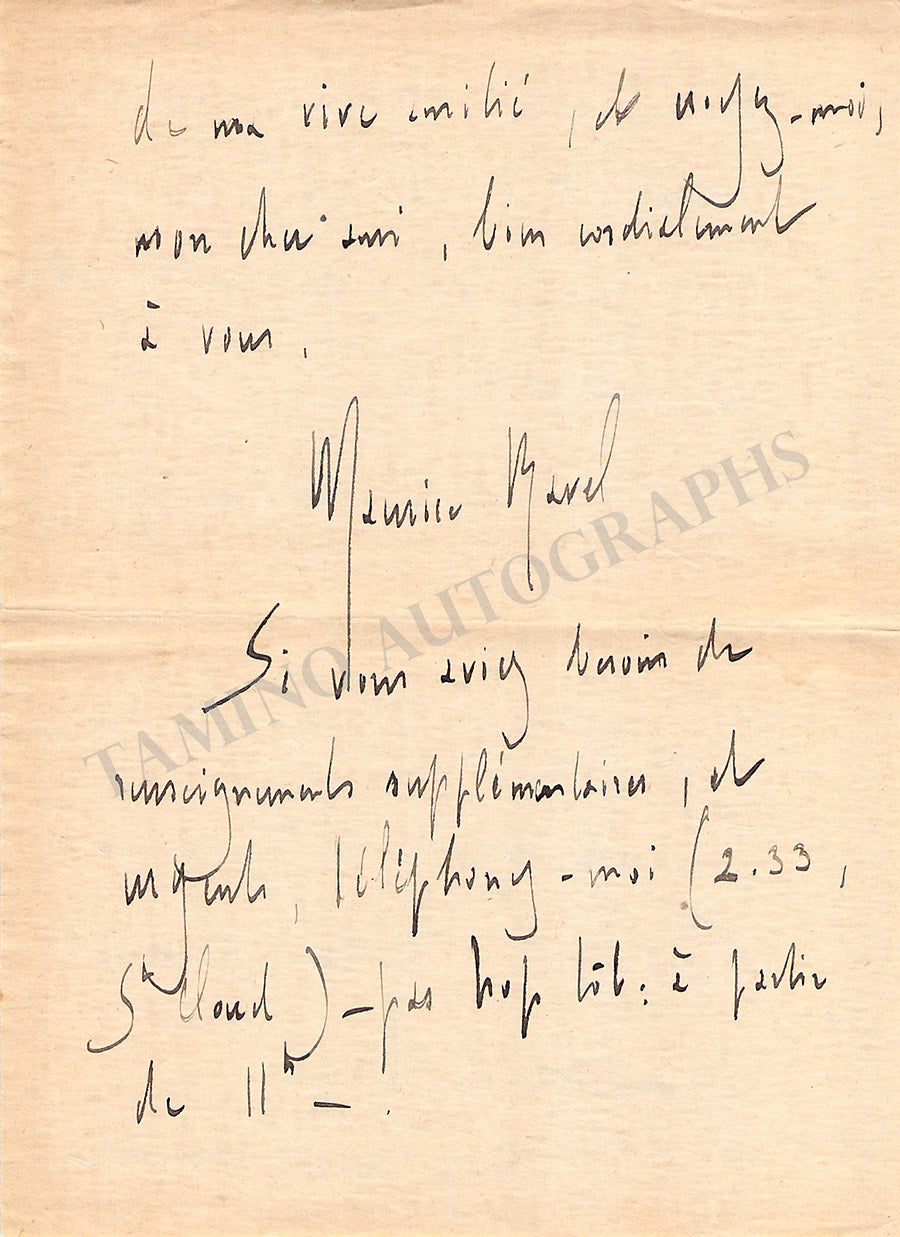 de ma vive amitié, et croyez-moi,
mon cher ami, bien cordialement
à vous,
Maurice Ravel
Si vous aviez besoin de
renseignements supplémentaires, et
urgents, téléphonez-moi (2.33,
St Cloud) – pas trop tôt : à partir
de 11h – .
TAMINO AUTOGRAPHS